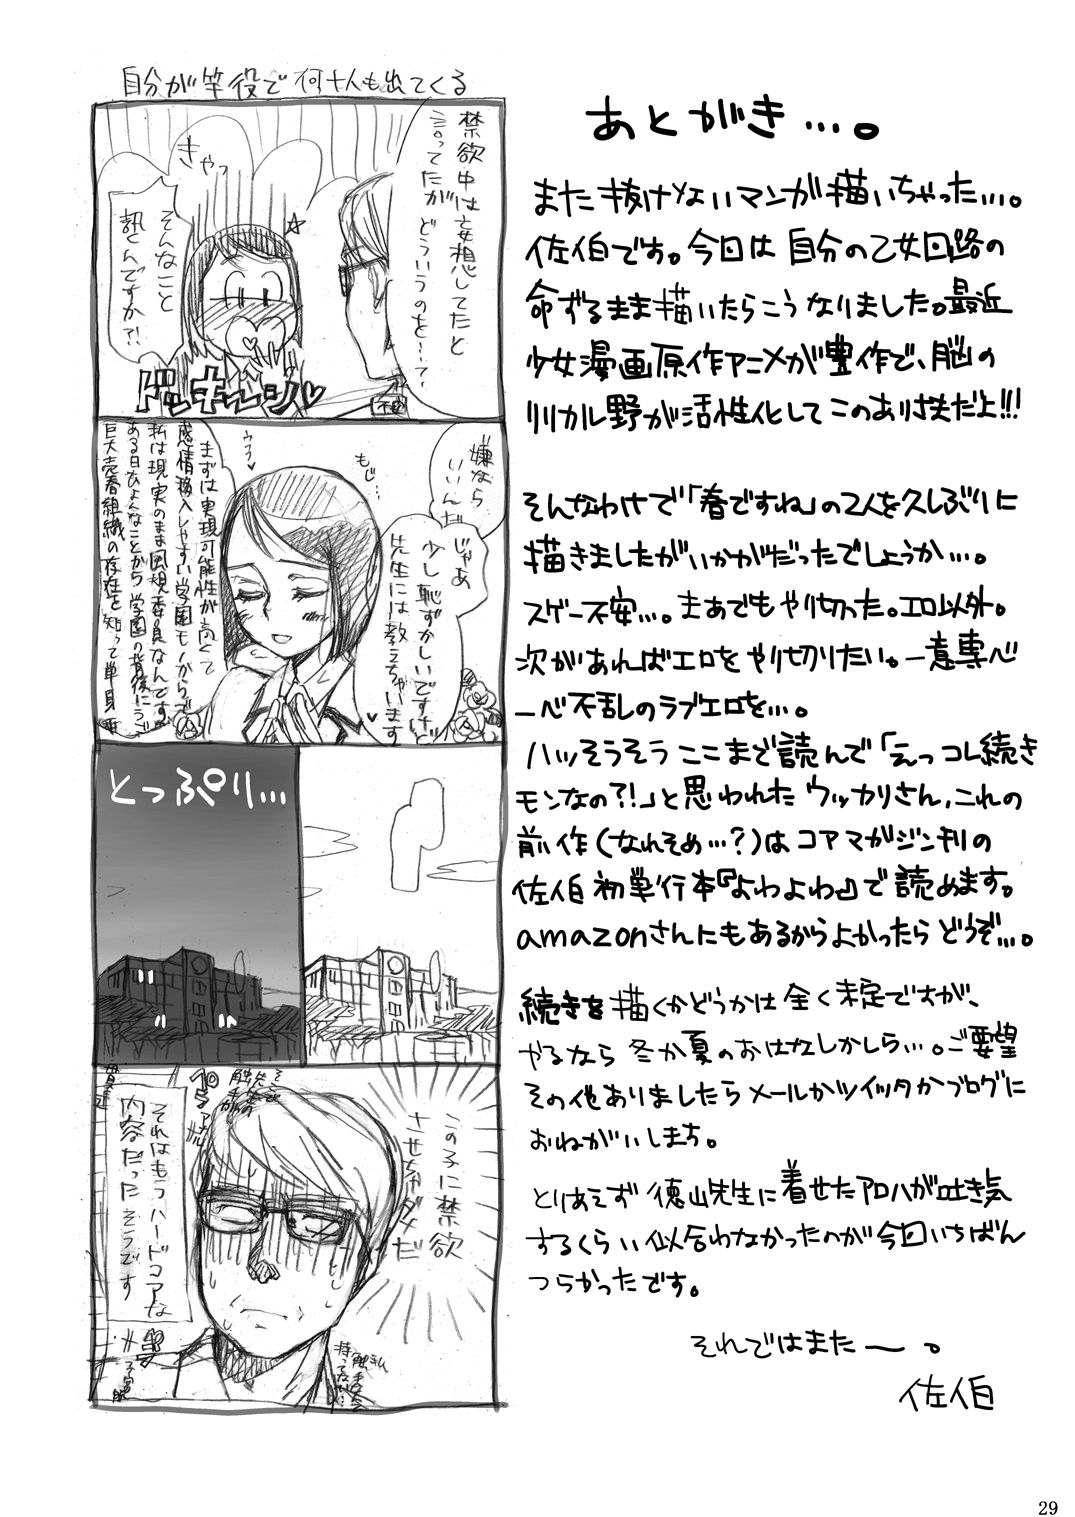 あとがき…。
また抜けないマンガ描いちゃった…。
佐伯です。今回は自分の乙女回路の
命ずるまま描いたらこうなりました。最近
少女漫画原作アニメが豊作で、脳の
リリカル野が活性化してこのあり様だよ!!!
そんなわけで「春ですね」の2人を久しぶりに
描きましたがいかがだったでしょうか…。
スゲー不安…。まあでもやり切った。エロ以外。
次があればエロをやり切りたい。一意専心
一心不乱のラブエロを…。
ハッそうそうここまで読んで「えっコレ続き
モンなの?!」と思われたウッカリさん、これの
前作(なれそめ…?)はコアマガジン刊の
佐伯初単行本『よわよわ』で読めます。
amazonさんにもあるからよかったらどうぞ…。
続きを描くかどうかは全く未定ですが、
やるなら冬か夏のおはなしかしら…。ご要望
その他ありましたらメールかツイッタかブログに
おねがいします。
とりあえず徳山先生に着せたアロハが吐き気
するくらい似合わなかったのが今回いちばん
つらかったです。
それではまたー。
佐伯
自分が竿役で何十人も出てくる
禁欲中は妄想してたと
言ってたが
どういうのを…?
きゃっ
そんなこと
訊くんですか?!
ドッキーン♥
嫌なら
いいんだ
もじ…
ウフフ♥
じゃあ
少し恥ずかしいですけど
先生には教えちゃいます♥
まずは実現可能性が高くて
感情移入しやすい学園モノからで
私は現実のまま風規委員なんですが
ある日ひょんなことから学園の背後にうご
巨大売春組織の存在を知って単身
とっぷり…
この子に禁欲
させちゃダメだ
それはもうハードコアな
内容だったそうです
私
触手なんて
持ってない…
29